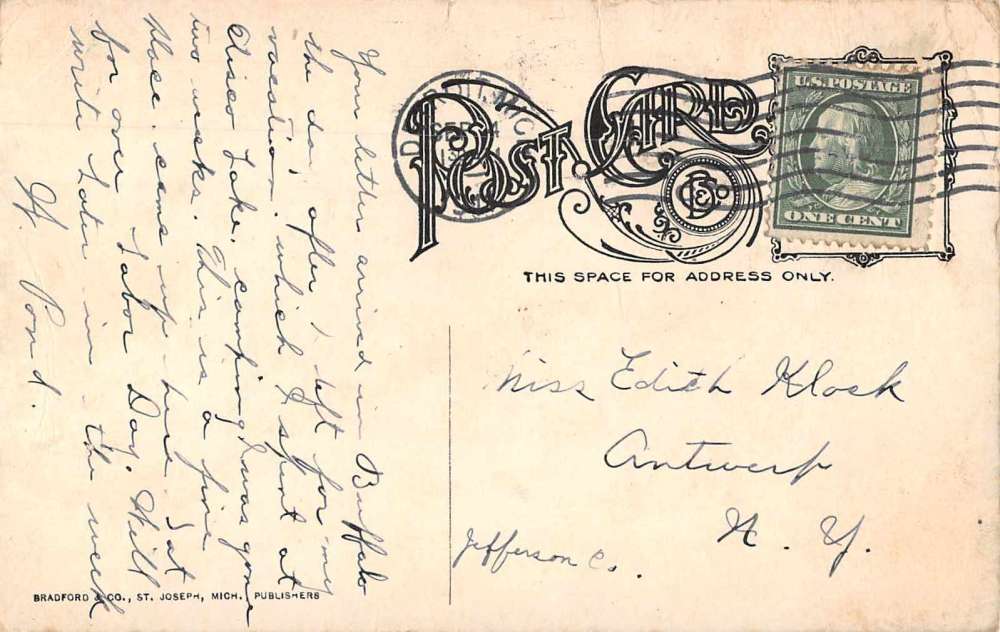 Your letter arrived in Buffalo
the day after I left for my
vacation. which I spent at
Lake. camping, was gone
two weeks. This is a fine
place. came up here Sat
for over Labor Day. Will
write later in the week
H. Pond.
POST CARD
U.S. POSTAGE
ONE CENT
THIS SPACE FOR ADDRESS ONLY.
Miss Edith Klock
Antwerp
N. Y.
Jefferson Co.
BRADFORD & CO., ST. JOSEPH, MICH. PUBLISHERS